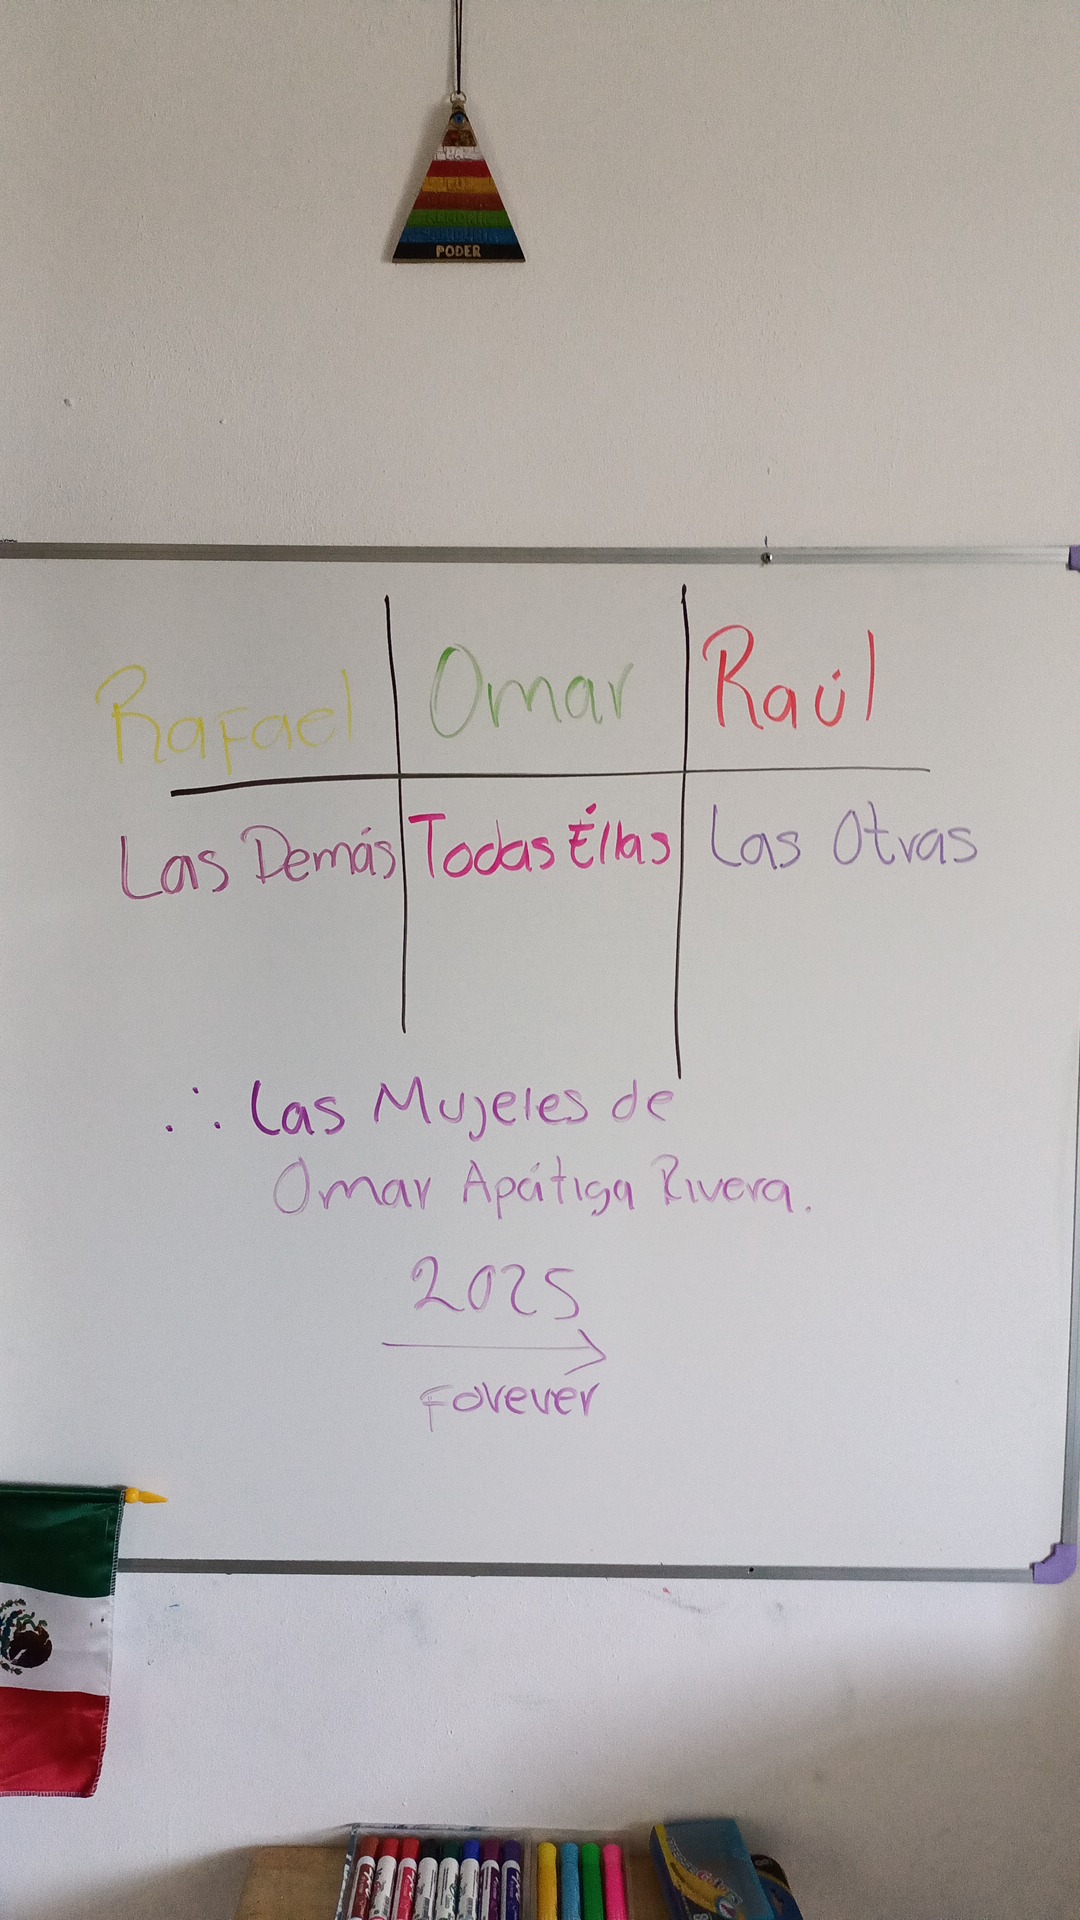 PODER
Rafael Omar Raúl
Las Demás Todas Éllas Las Otras
∴ Las Mujeles de
Omar Apátiga Rivera.
2025
Forever